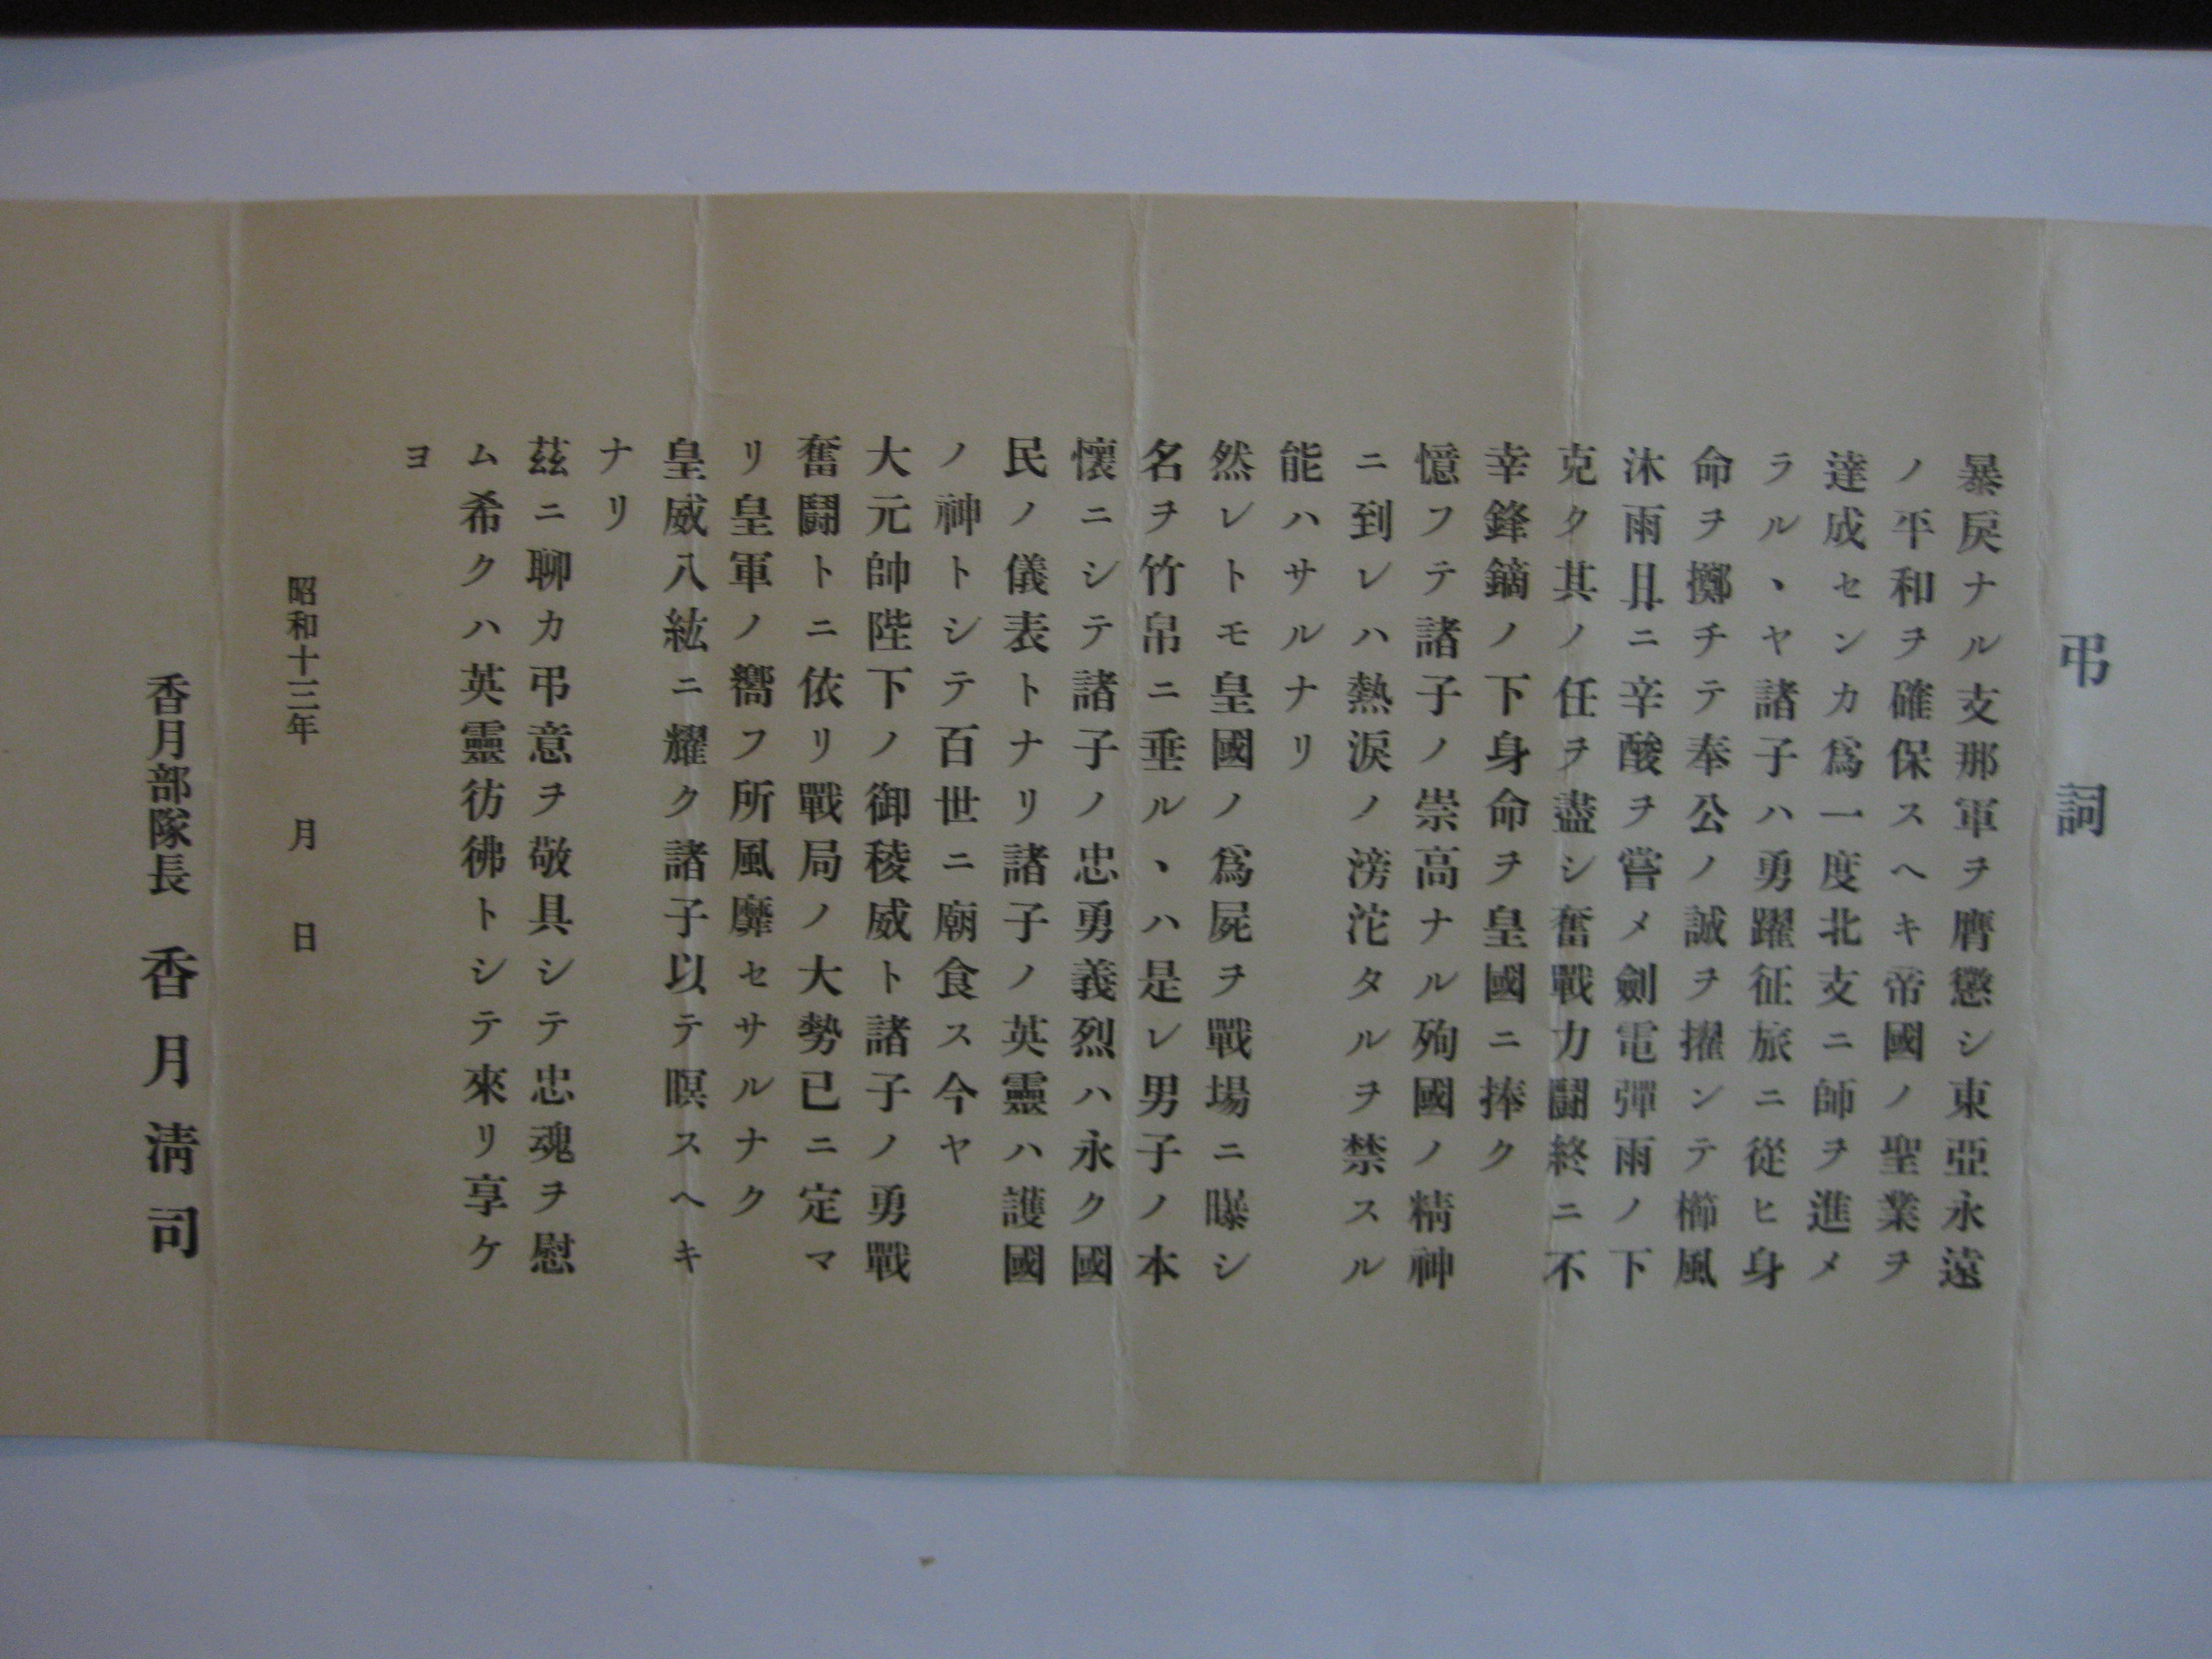 弔詞
暴戾ナル支那軍ヲ膺懲シ東亞永遠
ノ平和ヲ確保スヘキ帝國ノ聖業ヲ
達成センカ爲一度北支ニ師ヲ進メ
ラル丶ヤ諸子ハ勇躍征旅ニ從ヒ身
命ヲ擲チテ奉公ノ誠ヲ擢ンテ櫛風
沐雨具ニ辛酸ヲ嘗メ劍電彈雨ノ下
克ク其ノ任ヲ盡シ奮戰力鬪終ニ不
幸鋒鏑ノ下身命ヲ皇國ニ捧ク
憶フテ諸子ノ崇高ナル殉國ノ精神
ニ到レハ熱淚ノ滂沱タルヲ禁スル
能ハサルナリ
然レトモ皇國ノ爲屍ヲ戰場ニ曝シ
名ヲ竹帛ニ垂ル丶ハ是レ男子ノ本
懷ニシテ諸子ノ忠勇義烈ハ永ク國
民ノ儀表トナリ諸子ノ英靈ハ護國
ノ神トシテ百世ニ廟食ス今ヤ
大元帥陛下ノ御稜威ト諸子ノ勇戰
奮鬪トニ依リ戰局ノ大勢已ニ定マ
リ皇軍ノ嚮フ所風靡セサルナク
皇威八紘ニ耀ク諸子以テ瞑スヘキ
ナリ
茲ニ聊カ弔意ヲ敬具シテ忠魂ヲ慰
ム希クハ英靈彷彿トシテ來リ享ケ
ヨ
昭和十三年　月　日
香月部隊長　香月淸司